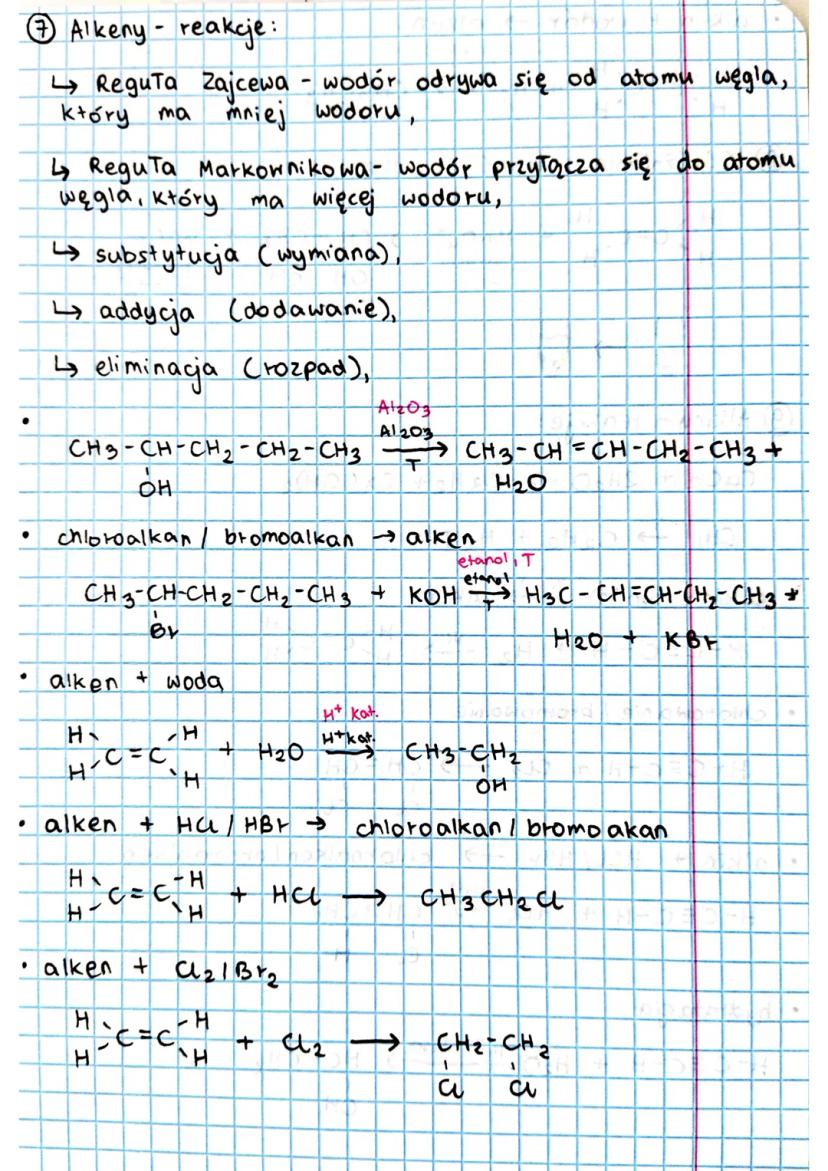 ⑦ Alkeny - reakcje:
↳ Reguła Zajcewa - wodór odrywa się od atomu węgla,
który ma mniej wodoru,
↳ Reguła Markownikowa- wodór przyłącza się do atomu
węgla, który ma więcej wodoru,
↳ substytucja (wymiana),
↳ addycja (dodawanie),
↳ eliminacja (rozpad),
Al2O3
Al2O3
• CH3-CH-CH2-CH2-CH3 → CH3-CH=CH-CH2-CH3 +
T
OH H2O
• chloroalkan / bromoalkan → alken
etanol, T
etanol
CH3-CH-CH2-CH2-CH3 + KOH → H3C-CH=CH-CH2-CH3 +
T
Br H2O + KBr
• alken + woda
H+ kat.
H H H+ kat.
C=C + H2O → CH3-CH2
H H OH
• alken + HCl / HBr → chloroalkan / bromoakan
H H
C=C + HCl → CH3CH2Cl
H H
• alken + Cl2 / Br2
H H
C=C + Cl2 → CH2-CH2
H H
Cl Cl